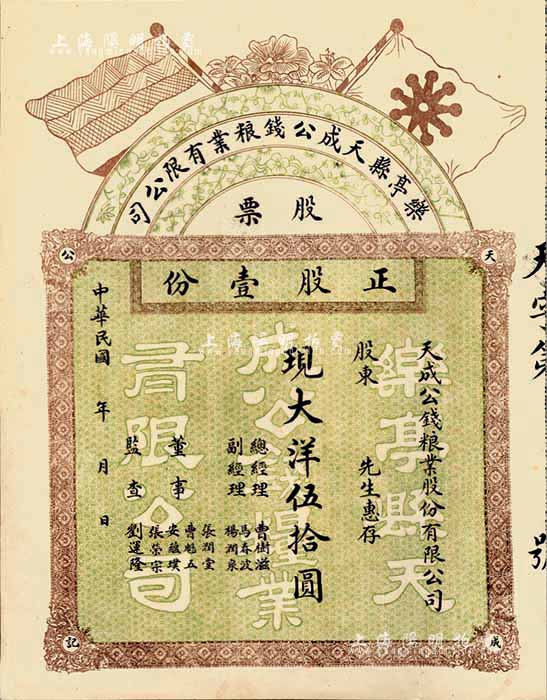 上海陽明拍賣
樂亭縣天成公錢粮業有限公司
股票
正股壹份
天
成
公
記
天成公錢粮業股份有限公司
股東　先生惠存
現大洋伍拾圓
總經理　曹樹滋
副經理　馬春波
楊潤泉
董事　張潤堂
曹魁五
監查　張榮宗
劉運隆
中華民國　年　月　日
樂亭縣天
成公錢糧業
有限公司
天字第
號
上海陽明拍賣
上海陽明拍賣